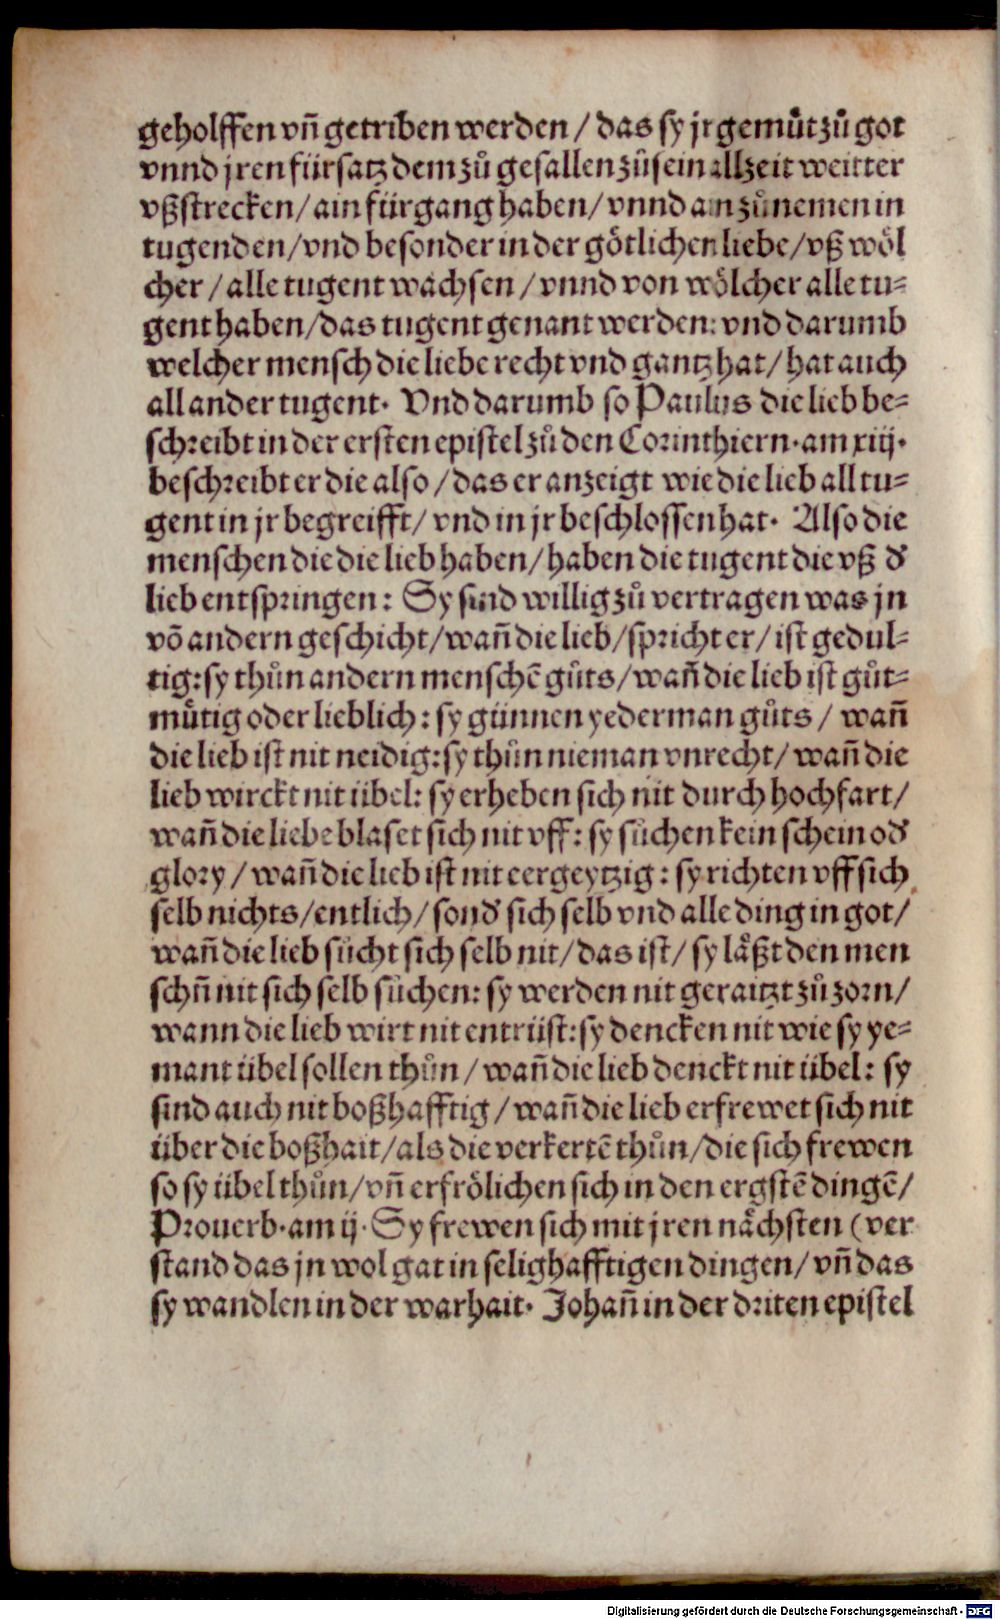 geholffen vñ getriben werden / das sy jr gemuͤt zuͦ got
vnnd jren fürsatz dem zuͦ gefallen zuͦ sein allzeit weitter
vßstrecken / ain fürgang haben / vnnd ain zuͦnemen in
tugenden / vnd besonder in der götlichen liebe / vß wöl
cher / alle tugent wachsen / vnnd von wölcher alle tu⸗
gent haben / das tugent genant werden: vnd darumb
welcher mensch die liebe recht vnd gantz hat / hat auch
all ander tugent. Vnd darumb so Paulus die lieb be⸗
schreibt in der ersten epistel zuͦ den Corinthiern. am xiij.
beschreibt er die also / das er anzeigt wie die lieb all tu⸗
gent in jr begreifft / vnd in jr beschlossen hat. Also die
menschen die die lieb haben / haben die tugent die vß dˀ
lieb entspringen: Sy sind willig zuͦ vertragen was jn
võ andern geschicht / wañ die lieb / spricht er / ist gedul⸗
tig: sy thuͦn andern menschẽ guͦts / wañ die lieb ist guͦt⸗
muͤtig oder lieblich: sy günnen yederman guͦts / wañ
die lieb ist nit neidig: sy thuͦn nieman vnrecht / wañ die
lieb wirckt nit übel: sy erheben sich nit durch hochfart /
wañ die liebe blaset sich nit vff: sy suͦchen kein schein odˀ
glory / wañ die lieb ist nit eergeytzig: sy richten vff sich
selb nichts / entlich / sondˀ sich selb vnd alle ding in got /
wañ die lieb suͦcht sich selb nit / das ist / sy läßt den men
schñ nit sich selb suͦchen: sy werden nit geraitzt zuͦ zorn /
wann die lieb wirt nit entrüst: sy dencken nit wie sy ye⸗
mant übel sollen thuͦn / wañ die lieb denckt nit übel: sy
sind auch nit boßhafftig / wañ die lieb erfrewet sich nit
über die boßhait / als die verkertẽ thuͦn / die sich frewen
so sy übel thuͦn / vñ erfrölichen sich in den ergstẽ dingẽ /
Prouerb. am ij. Sy frewen sich mit jren nächsten (ver
stand das jn wol gat in selighafftigen dingen / vñ das
sy wandlen in der warhait. Johañ in der driten epistel
Digitalisierung gefördert durch die Deutsche Forschungsgemeinschaft - DFG